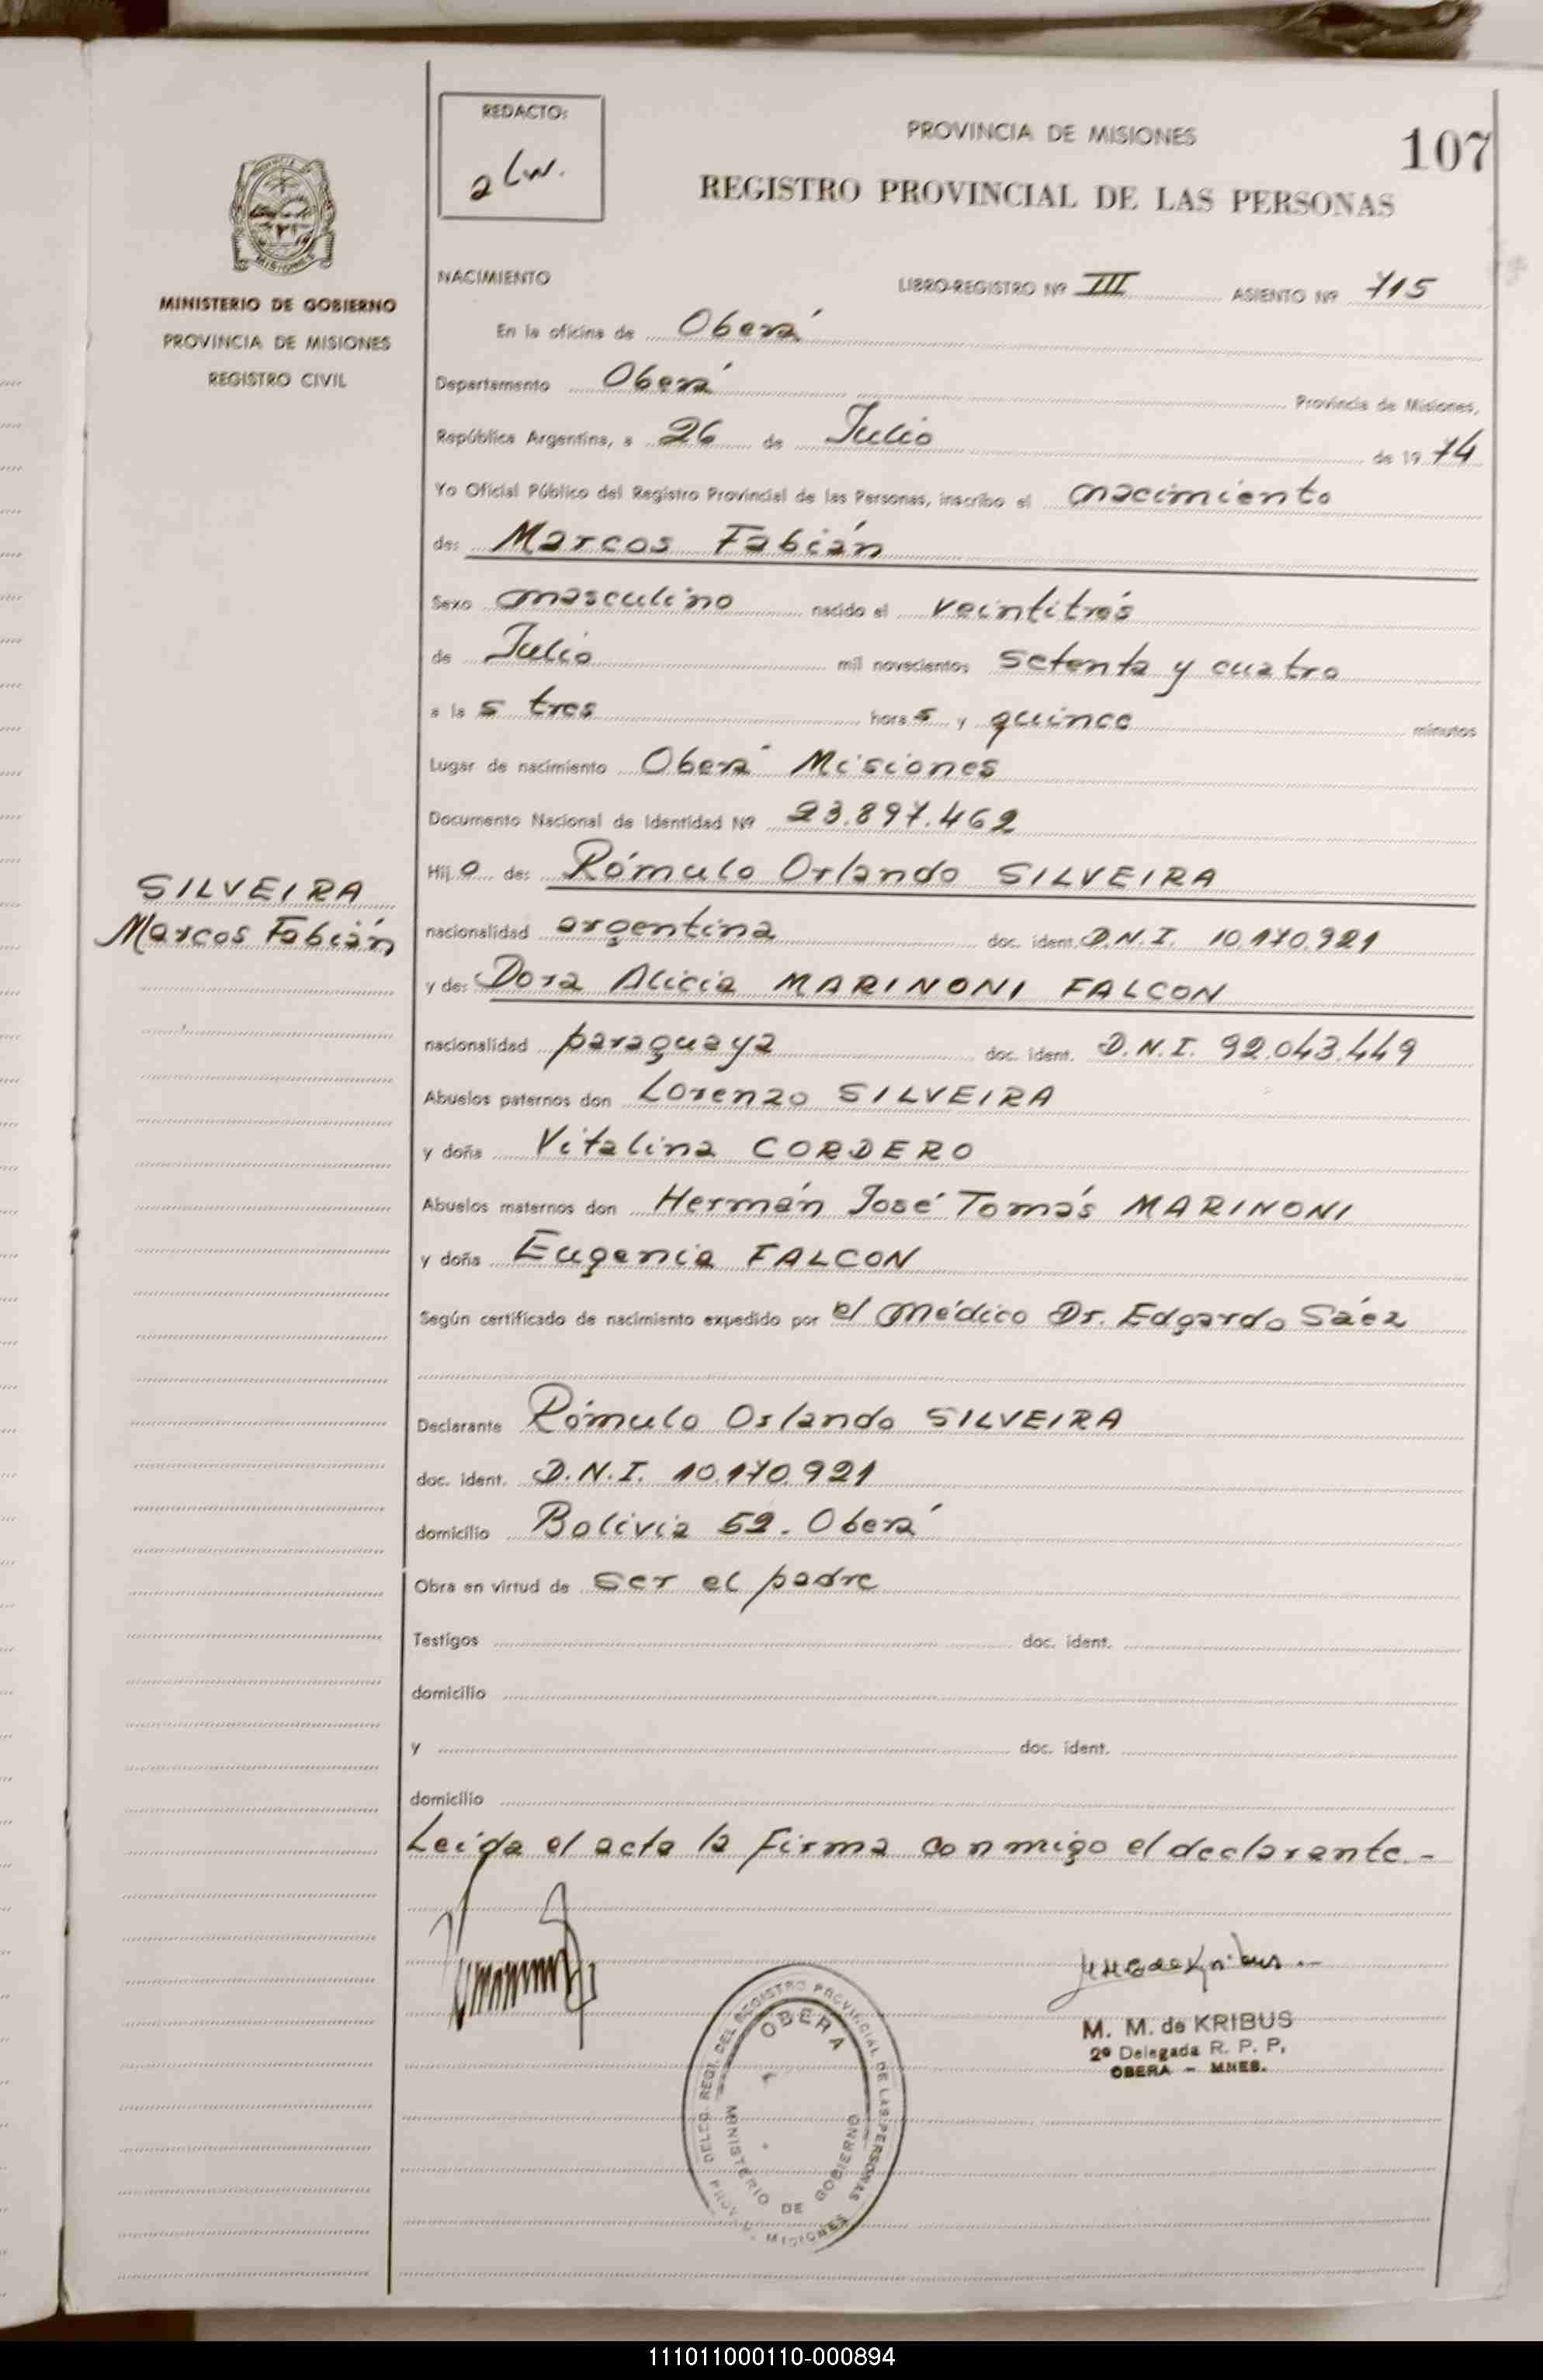 107
REDACTO:
PROVINCIA DE MISIONES
REGISTRO PROVINCIAL DE LAS PERSONAS
MISIONES
MINISTERIO DE GOBIERNO
PROVINCIA DE MISIONES
REGISTRO CIVIL
NACIMIENTO LIBRO-REGISTRO Nº III ASIENTO Nº 715
En la oficina de Oberá
Departamento Oberá Provincia de Misiones,
República Argentina, a 26 de Julio de 19 74
Yo Oficial Público del Registro Provincial de las Personas, inscribo el nacimiento
de: Marcos Fabián
Sexo masculino nacido el veintitrés
de Julio mil novecientos setenta y cuatro
a las tres horas y quince minutos
Lugar de nacimiento Oberá Misiones
Documento Nacional de Identidad Nº 23.897.462
Hijo de: Rómulo Orlando SILVEIRA
SILVEIRA
Marcos Fabián
nacionalidad argentina doc. ident. D.N.I. 10.170.921
y de: Dora Alicia MARINONI FALCON
nacionalidad paraguaya doc. ident. D.N.I. 92.043.449
Abuelos paternos don Lorenzo SILVEIRA
y doña Vitalina CORDERO
Abuelos maternos don Hermán José Tomás MARINONI
y doña Eugenia FALCON
Según certificado de nacimiento expedido por el Médico Dr. Edgardo Sáez
Declarante Rómulo Orlando SILVEIRA
doc. ident. D.N.I. 10.170.921
domicilio Bolivia 52. Oberá
Obra en virtud de ser el padre
Testigos doc. ident.
domicilio
y doc. ident.
domicilio
Leída el acta la firma conmigo el declarante.-
M. M. de KRIBUS
2º Delegada R. P. P.
OBERA - MNES.
DELEG. REGI. DEL REGISTRO PROVINCIAL DE LAS PERSONAS
OBERA
MINISTERIO DE GOBIERNO
MISIONES
111011000110-000894